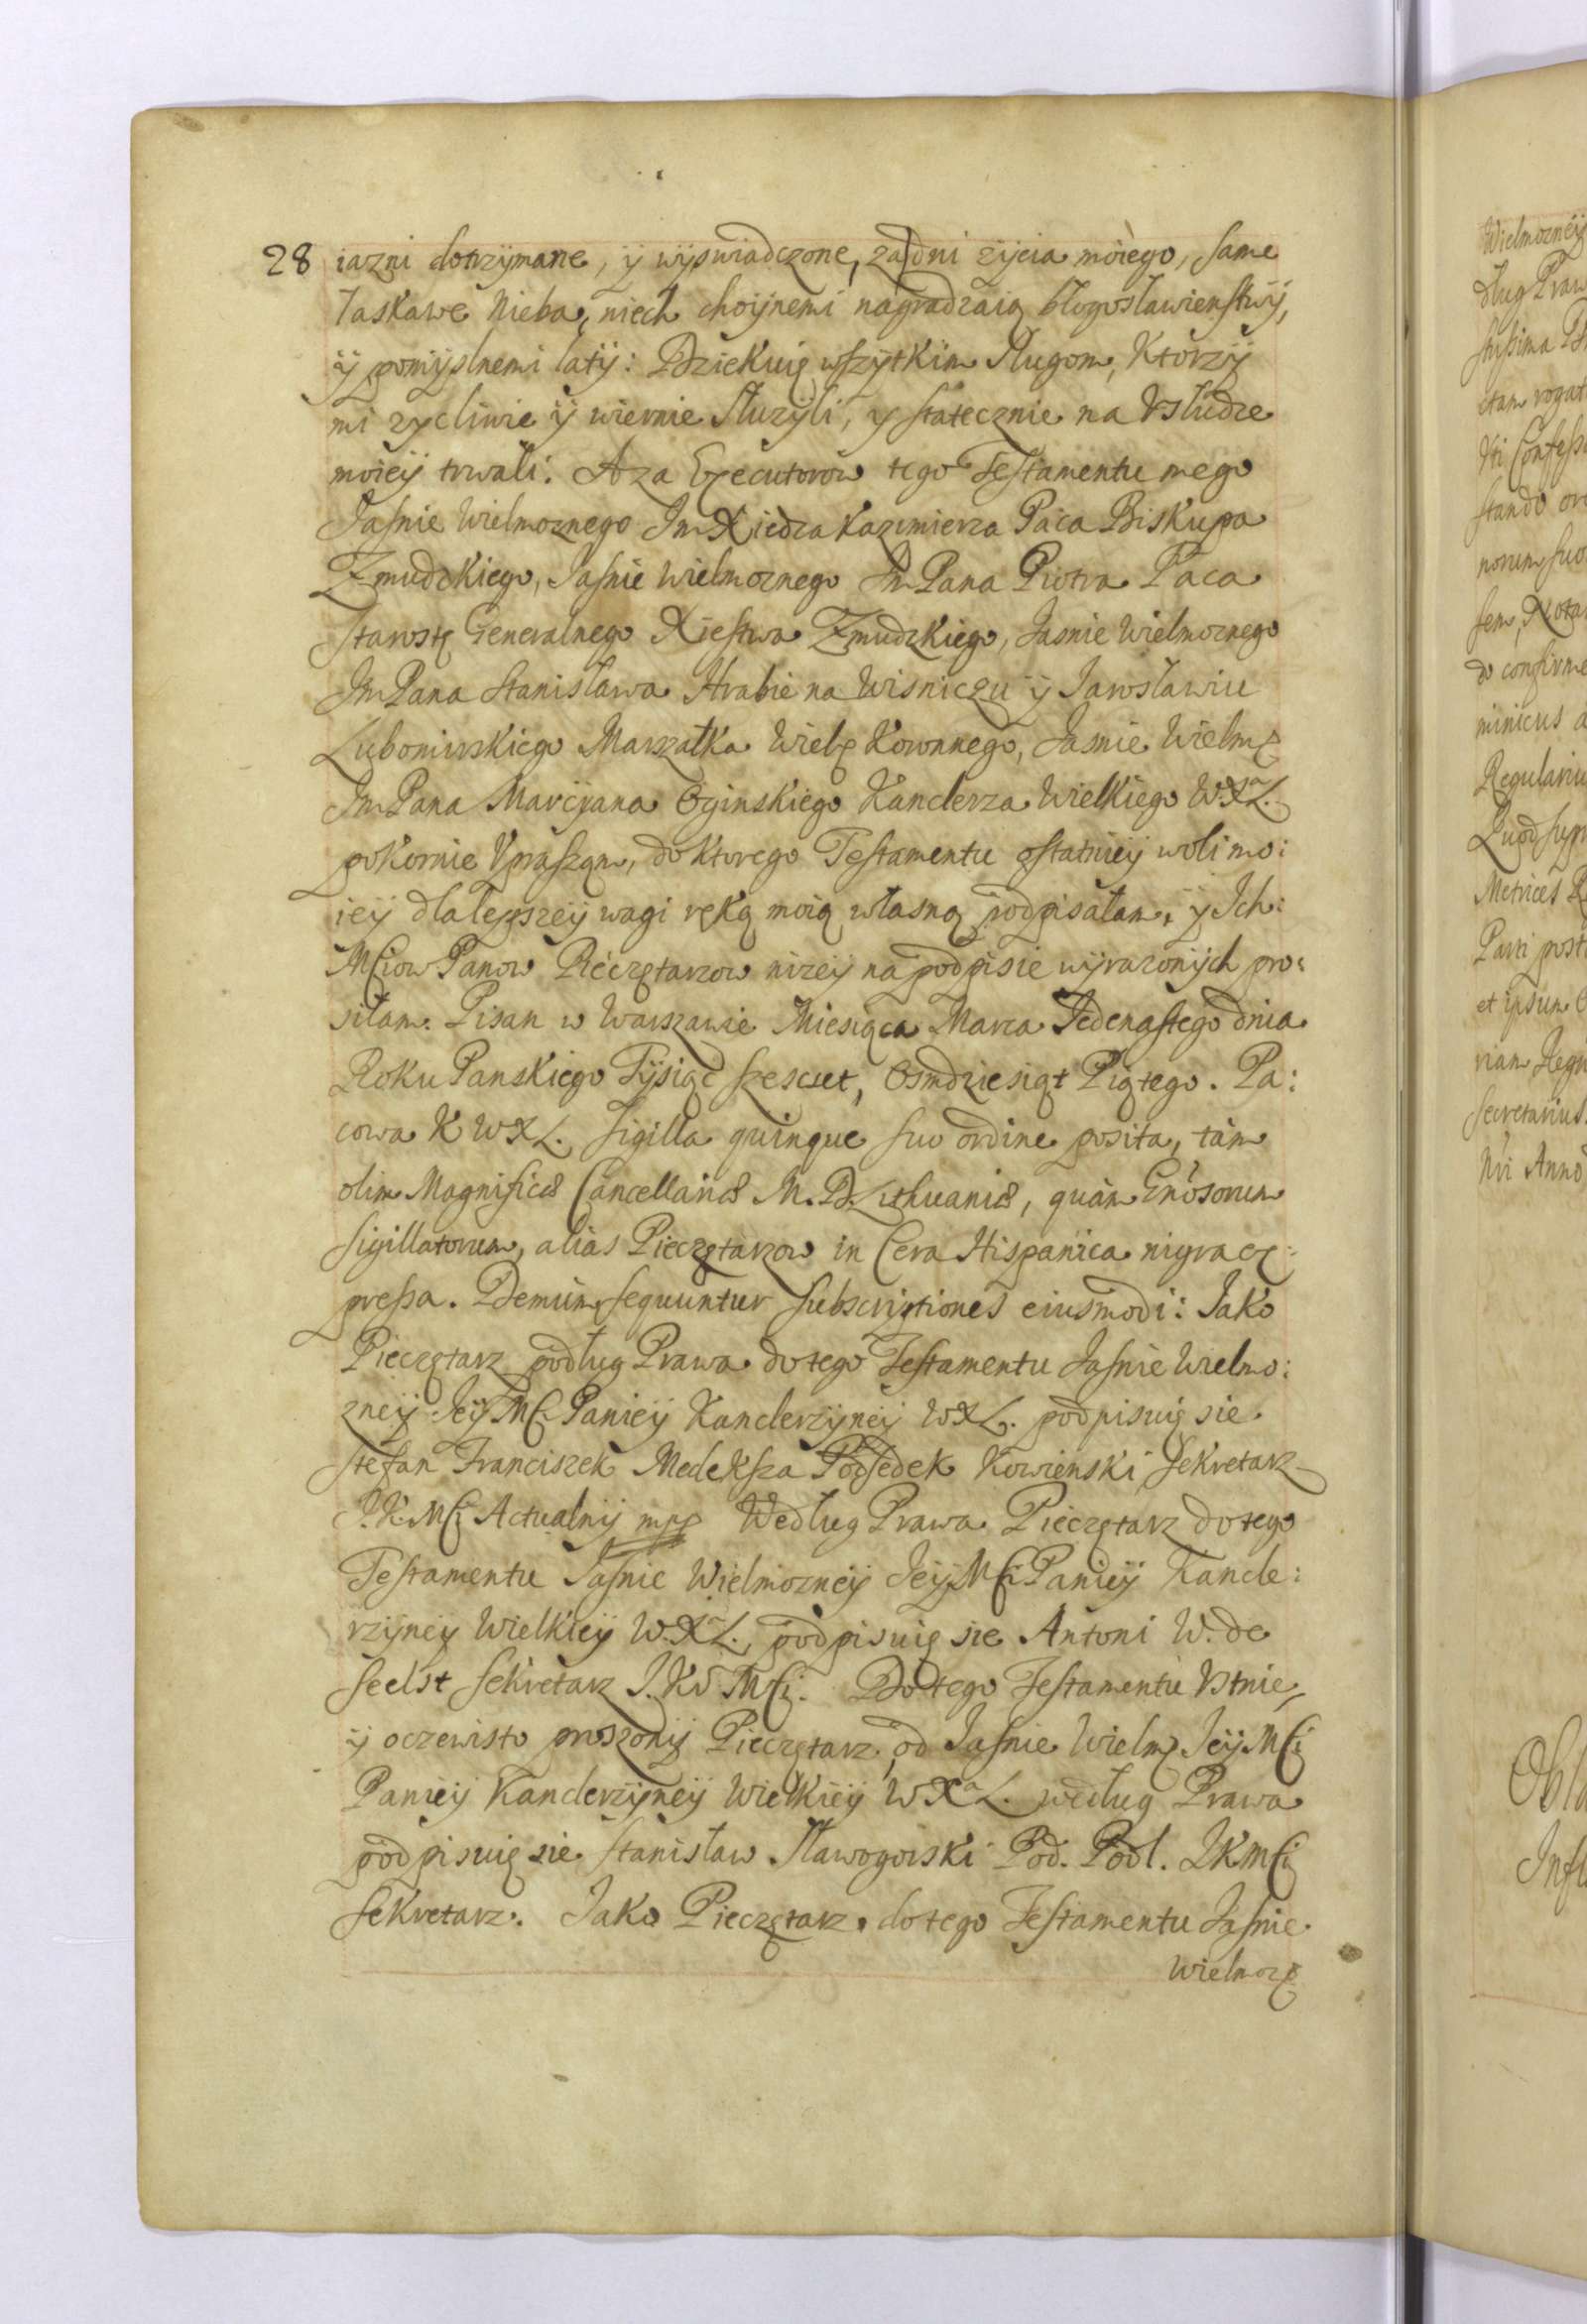 28 iazni dotrzymane, ÿ wÿswiadczone, za dni zÿcia moiego, same
łaskawe Nieba, niech choÿnemi nagradzaią błogosławienstwÿ,
ÿ pomÿslnemi latÿ: Dziekuię wszÿtkim Sługom, Ktorzÿ
mi zycliwie ÿ wiernie Słuzÿli, y statecznie na Vsłudze
moieÿ trwali. A za Executorow tego Testamentu mego
Jasnie Wielmoznego Jm Xiedza Kazimierza Paca Biskupa
Zmudzkiego, Jasnie Wielmoznego Jm Pana Piotra Paca
Starostę Generalnego Xiestwa Zmudzkiego, Jasnie Wielmoznego
Jm Pana Stanisława Hrabie na Wisniczu ÿ Jarosławiu
Lubomirskiego Marszałka Wielg Koronnego, Jasnie Wielmg
Jm Pana Marcÿana Oginskiego Kanclerza Wielkiego W.X.L.
pokornie Vpraszam, do ktorego Testamentu ostatnieÿ woli mo:
ieÿ dla lepszeÿ wagi ręką moią własną podpisałam, ÿ Ich:
Mciow Panow Pieczętarzow nizeÿ na podpisie wÿrazonÿch pro:
siłam. Pisan w Warszawie Miesiąca Marca Jedenastego dnia
Roku Panskiego Tÿsiąc szescset, Osmdziesiąt Piątego. Pa:
cowa K W X L. Sigilla quinque suo ordine posita, tàm
olim Magnificæ Cancellariæ M. D. Lithuaniæ, quàm Gnosorum
Sigillatorum, aliàs Pieczętarzow in Cera Hispanica nigra ex:
pressa. Demùm sequuntur subscriptiones eiusmodi: Jako
Pieczętarz podług Prawa do tego Testamentu Jasnie Wielmo:
zneÿ Jeÿ Mci Panieÿ Kanclerzÿneÿ W X L. podpisuię sie
Stefan Franciszek Medeksza Podsedek Kowienski, Sekretarz
J.K.Mci Actualnÿ mpp Według Prawa Pieczętarz do tego
Testamentu Jasnie Wielmozneÿ Jeÿ Mci Panieÿ Kancle:
rzÿneÿ Wielkieÿ W.X.L. podpisuię sie Antoni W. de
Seelst Sekretarz J.K. Mci. Do tego Testamentu Vstnie,
ÿ oczewisto proszonÿ Pieczętarz, od Jasnie Wielmg Jeÿ Mci
Panieÿ Kanclerzÿneÿ Wielkieÿ W X L. według Prawa
podpisuię sie Stanisław Sławogorski Pod. Podl. J K Mci
Sekretarz. Jako Pieczętarz do tego Testamentu Jasnie
Wielmozg